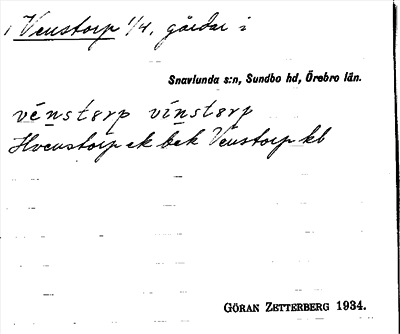 Venstorp 1/4, gårdar i
Snavlunda s:n, Sundbo hd, Örebro län.
vènstǝrp vìnstǝrp
Hvenstorp ek bek Venstorp kb
GÖRAN ZETTERBERG 1934.